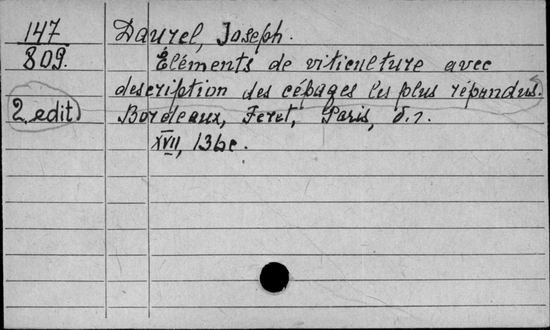 147 Daurel, Joseph.
809. Éléments de viticulture avec
description des cépages les plus répandus.
2 edit) Bordeaux, Feret, Paris, б. г.
XVII, 136 с.